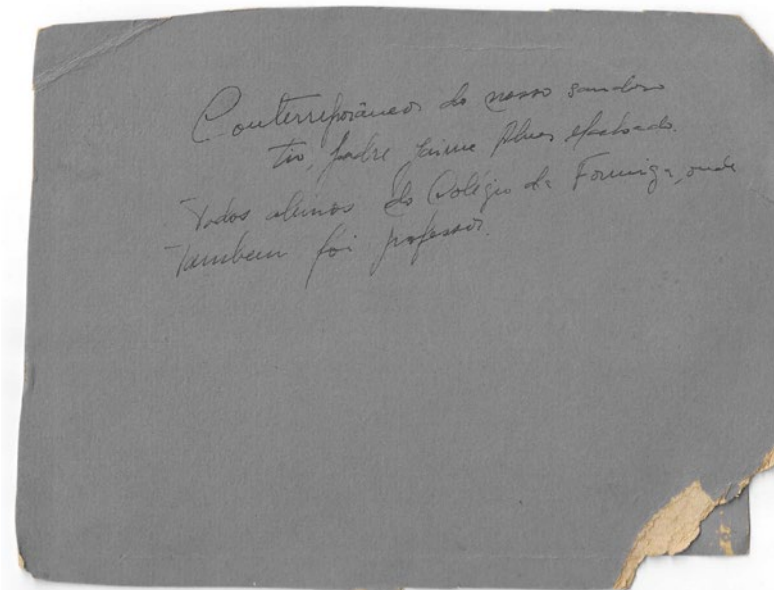 Conterrephoraneos do nosso saudoso
tio, padre Jaime Alves Machado.
Todos alunos do Colégio da Formiga, onde
Tambem foi professor.